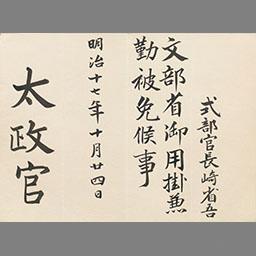 式部官長崎省吾
文部省御用掛兼
勤被免候事
明治十七年十月廿四日
太政官